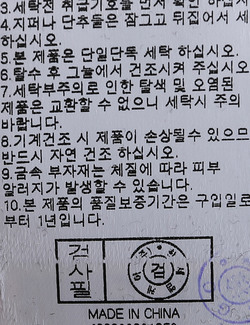 3.세탁전 취급기호를 먼저 확인 하십
4.지퍼나 단추들은 잠그고 뒤집어서 세
하십시오.
5.본 제품은 단일단독 세탁 하십시오.
6.탈수 후 그늘에서 건조시켜 주십시오
7.세탁부주의로 인한 탈색 및 오염된
제품은 교환할 수 없으니 세탁시 주의
바랍니다.
8.기계건조 시 제품이 손상될수 있으므
반드시 자연 건조 하십시오.
9.금속 부자재는 체질에 따라 피부
알러지가 발생할 수 있습니다.
10.본 제품의 품질보증기간은 구입일로
부터 1년입니다.
검사필
검
MADE IN CHINA